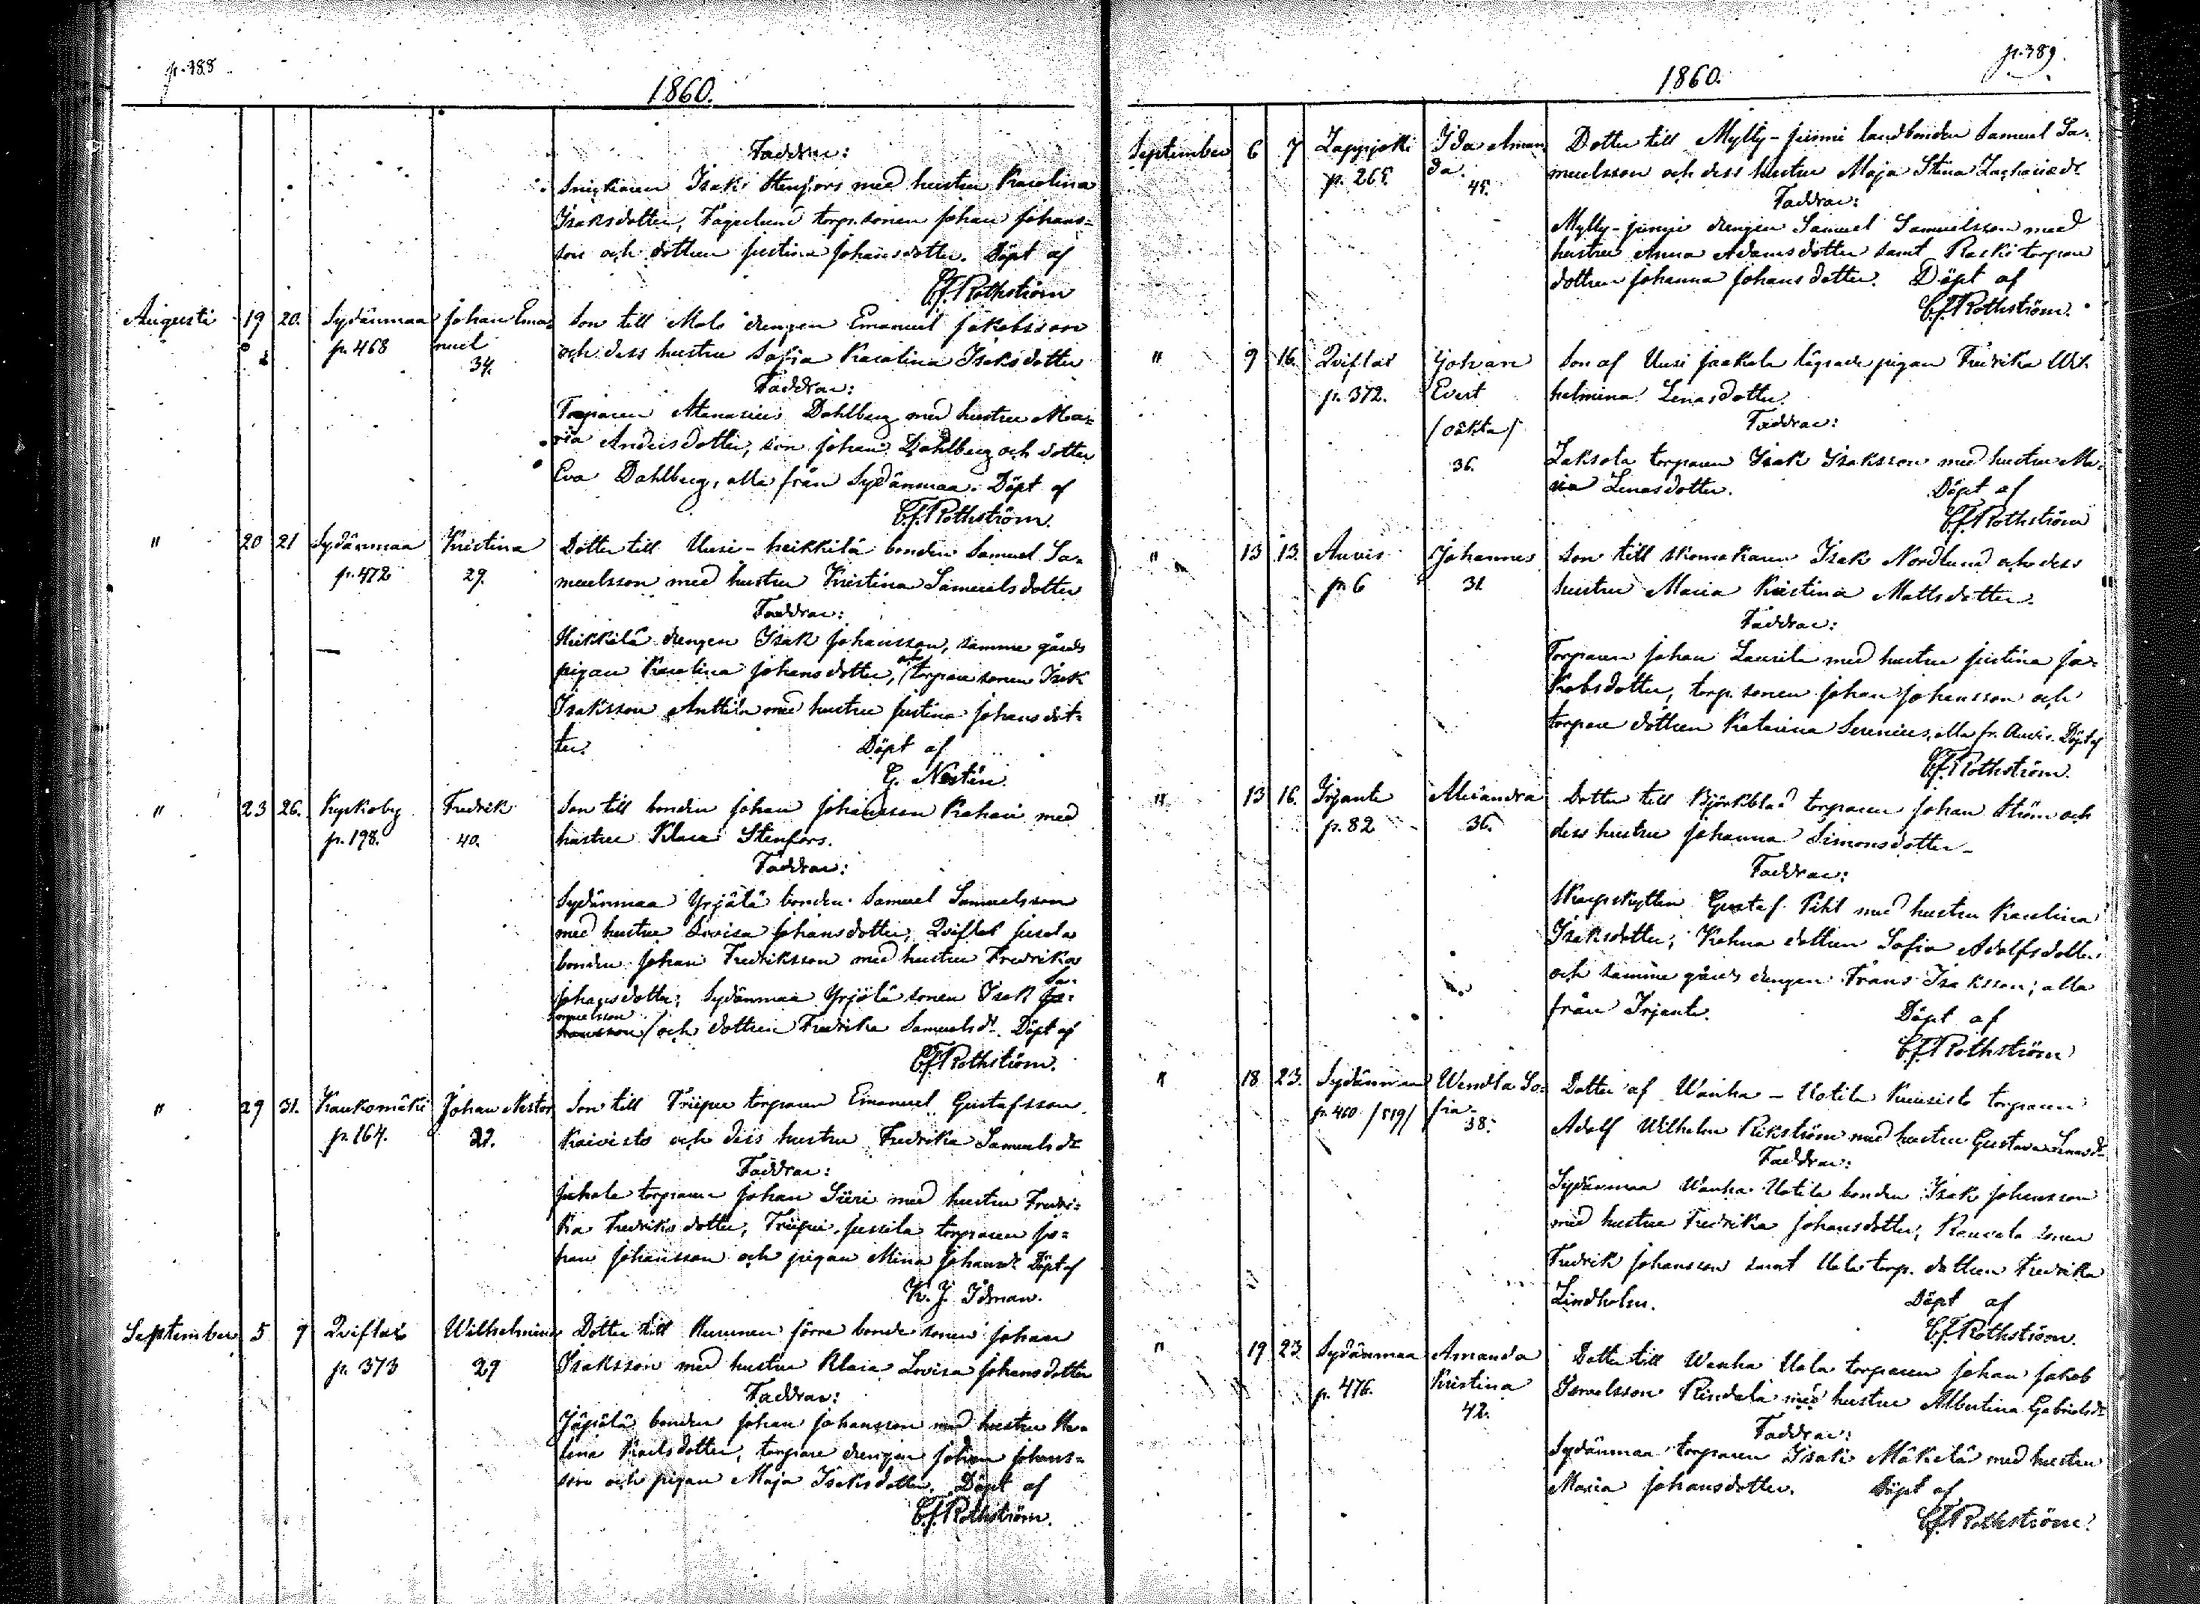 p. 388
1860.
Faddrar:
Snickaren Isak Stenfors med hustru Karolina
Isaksdotter, Fagerlund torp. sonen Johan Johans-
son och dottren Justina Johansdotter. Döpt af
C.f. Rothström
Augusti 19 20. Sydänmaa Johan Ema- Son till Malo drengen Emanuel Jakobsson
p. 468 nuel och dess hustru Sofia Karolina Isaksdotter
34. Faddrar:
Torparen Atanasius Dahlberg med hustru Ma-
ria Andersdotter, son Johan Dahlberg och dotter
Eva Dahlberg, alla från Sydänmaa. Döpt af
C.f. Rothström.
" 20 21 Sydänmaa Kristina Dotter till Uusi-heikkilä bonden Samuel Sa-
p. 472 29. muelsson med hustru Kristina Samuelsdotter
Faddrar:
Heikkilä drengen Isak Johansson, samma gårds
pigan Karolina Johansdotter, och torpare sonen Isak
Isaksson Anttila med hustru Justina Johansdot-
ter. Döpt af
G. Nestén.
" 23 26. Kyrkoby Fredrik Son till bonden Johan Johansson Krahani med
p. 198. 40. hustru Klara Stenfors.
Faddrar:
Sydänmaa Yrjälä bonden Samuel Samuelsson
med hustru Lovisa Johansdotter, Qviflax Jusola
bonden Johan Fredriksson med hustru Fredrika
Johansdotter; Sydänmaa Yrjölä sonen Isak Sa-
muelsson och dottren Fredrika Samuelsdr. Döpt af
C.f. Rothström.
" 29 31. Kaukomäki Johan Nestor Son till Friipu torparen Emanuel Gustafsson
p. 164. 22. Koivisto och dess hustru Fredrika Samuelsdr
Faddrar:
Juhola torparen Johan Siiri med hustru Fredri-
ka Fredriksdotter, Friipu Jussila torparen Jo-
han Johansson och pigan Mina Johansdr. Döpt af
K. J. Idman.
September 5 9 Qviflax Wilhelmina Dotter till Kummen förre bonde sonen Johan
p. 373 29 Isaksson med hustru Klara Lovisa Johansdotter
Faddrar:
Jäpälä bonden Johan Johansson med hustru He-
lena Karlsdotter, torpare drengen Johan Johans-
son och pigan Maja Isaksdotter. Döpt af
C.f. Rothström.
p. 389.
1860.
September 6 7 Lappjokki Ida Aman- Dotter till Mylly-junni landbonden Samuel Sa-
p. 265. da. muelsson och dess hustru Maja Stina Zachariædr
45. Faddrar:
Mylly-junni drengen Samuel Samuelsson med
hustru Anna Adamsdotter samt Raski torpare
dottren Johanna Johansdotter. Döpt af
C.f. Rothström.
" 9 16. Qviflax Johan Son af Uusi Jaakola lägrade pigan Fredrika Wil-
p. 372. Evert helmina Lenasdotter.
/oäkta/ Faddrar:
36. Laksola torparen Isak Isaksson med hustru Ma-
ria Lenasdotter. Döpt af
C.f. Rothström
" 13 13. Auvis Johannes Son till skomakaren Isak Nordlund och dess
p. 6 31. hustru Maria Kristina Mattsdotter.
Faddrar:
Torparen Johan Laurila med hustru Justina Ja-
kobsdotter, torp. sonen Johan Johansson och
torpare dottren Katarina Serenius, alla fr. Auvis. Döpt af
C.f. Rothström.
" 13 16. Irjante Alexandra Dotter till Björkblad torparen Johan Ström och
p. 82 36. dess hustru Johanna Simonsdotter-
Faddrar:
Skarpskytten Gustaf Pihl med hustru Karolina
Isaksdotter; Krahna dottren Sofia Adolfsdotter
och samma gårds drengen Frans Isaksson; alla
från Irjante. Döpt af
C.f. Rothström
" 18 23. Sydänmaa Wendla So- Dotter af Wanha-Uotila Kuusisto torparen
p. 460 /519/ fia. Adolf Wilhelm Rikström med hustru Gustava Lenasdr
38. Faddrar:
Sydänmaa Wanha Uotila bonden Isak Johansson
med hustru Fredrika Johansdotter, sonen
Fredrik Johansson samt Uola torp. dottren Fredrika
Lindholm. Döpt af
C.f. Rothström.
" 19 23 Sydänmaa Amanda Dotter till Wanha Uola torparen Johan Jakob
p. 476. Kristina Ismelsson Rindala med hustru Albertina Gabrielsdr
42. Faddrar:
Sydänmaa torparen Isak Mäkelä med hustru
Maria Johansdotter. Döpt af
C.f. Rothström.